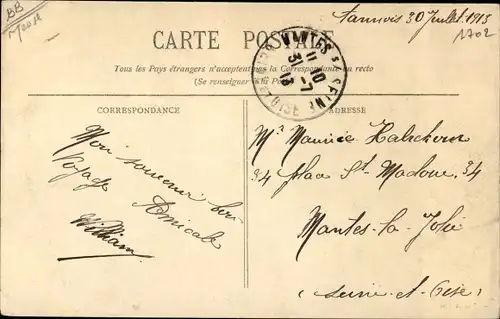 BB
Meuse
Tannois 30 Juillet 1913
1702
CARTE POSTALE
Tous les Pays étrangers n'acceptent pas la Correspondance au recto
(Se renseigner à la Poste)
MANTES S. SEINE
11-10
31-7
13
SEINE-ET-OISE
CORRESPONDANCE
ADRESSE
Mon souvenir
Voyage Amicale
William
Mr Maurice
34 place St-Maclou. 34
Mantes-la-Jolie
(Seine-et-Oise)